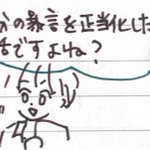 の暴言を正当化した
ですよね?